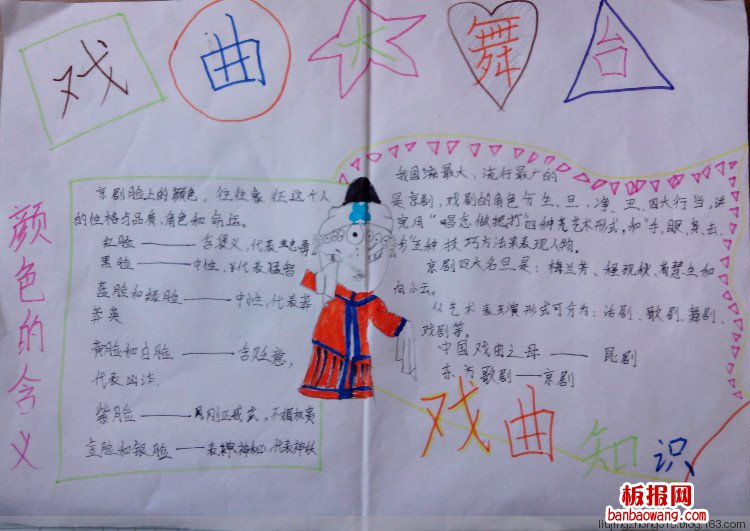 戏曲大舞台
颜色的含义
京剧脸上的颜色，往往象征这个人
的性格与品质、角色和命运。
红脸——含褒义，代表忠勇
黑脸——中性，代表猛智
蓝脸和绿脸——中性，代表草
莽英
黄脸和白脸——含贬意，
代表凶诈.
紫脸——刚正威武，不媚权贵
金脸和银脸——神秘，代表神妖
我国流最大，流行最广的
是京剧，戏剧的角色分生、旦、净、丑四大行当，讲
究用"唱念做把打"四种艺术形式，和"手、眼、身、
步"五种技巧方法来表现人物。
京剧四大名旦是：梅兰芳、程砚秋、荀慧生和
尚小云。
从艺术表演形式可分为：话剧、歌剧、舞剧、
戏剧等。
中国戏曲之母——昆剧
东方歌剧——京剧
戏曲知识
板报网
banbaowang.com
liujingzhong315.blog.163.com